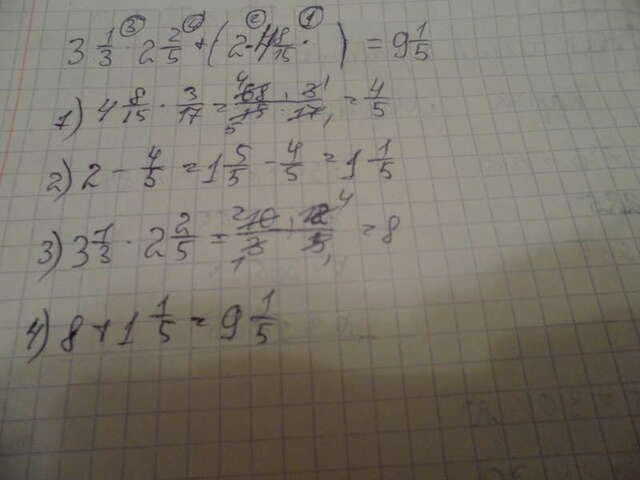 3 1/3 ③ · 2 2/5 ④ + (2 ② - 4 8/15 · ① ) = 9 1/5
1) 4 8/15 · 3/17 = 68 · 3 / 15 · 17 = 4/5
2) 2 - 4/5 = 1 5/5 - 4/5 = 1 1/5
3) 3 1/3 · 2 2/5 = 10 · 12 / 3 · 5 = 8
4) 8 + 1 1/5 = 9 1/5